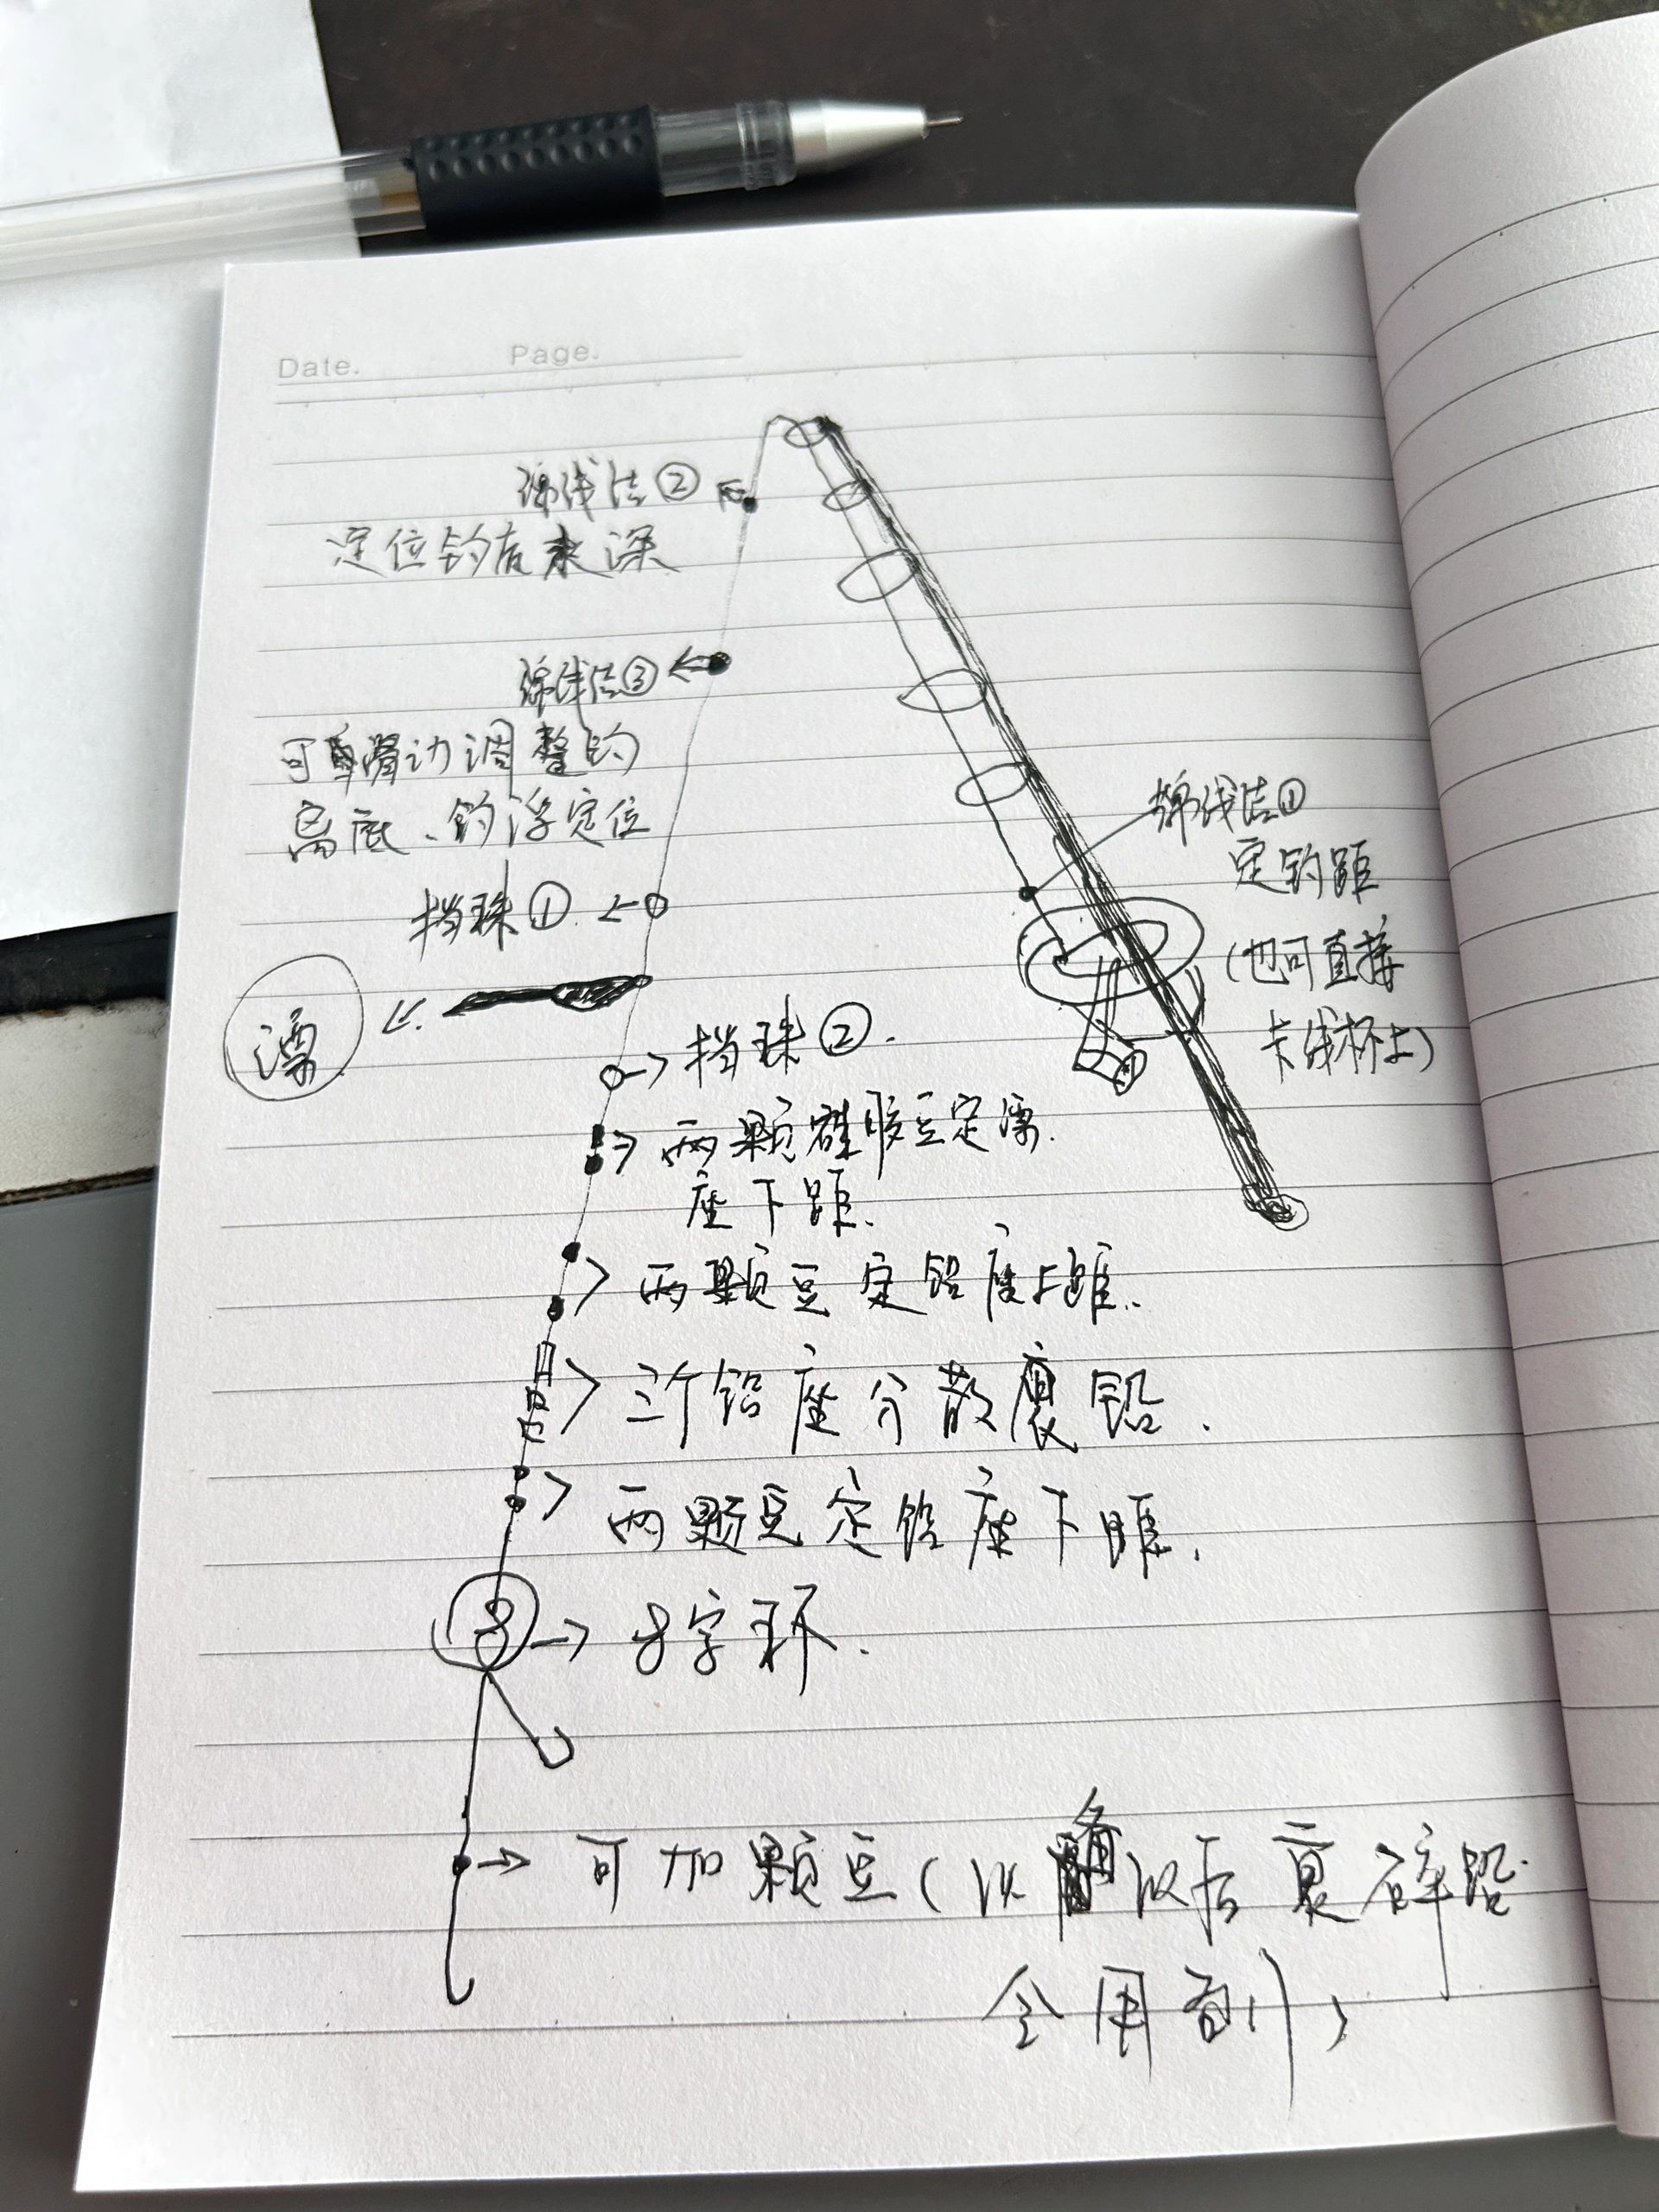 Date. Page.
棉线结②
定位钓底水深
棉线结③
可滑动调整钓
高底、钓浮定位
挡珠①
漂
棉线结①
定钓距
(也可直接
卡线杯上)
挡珠②.
两颗硅胶豆定漂
座下距.
两颗豆定铅座上距.
三个铅座分散裹铅.
两颗豆定铅座下距.
8
8字环.
可加颗豆(以备以后裹碎铅
会用到)